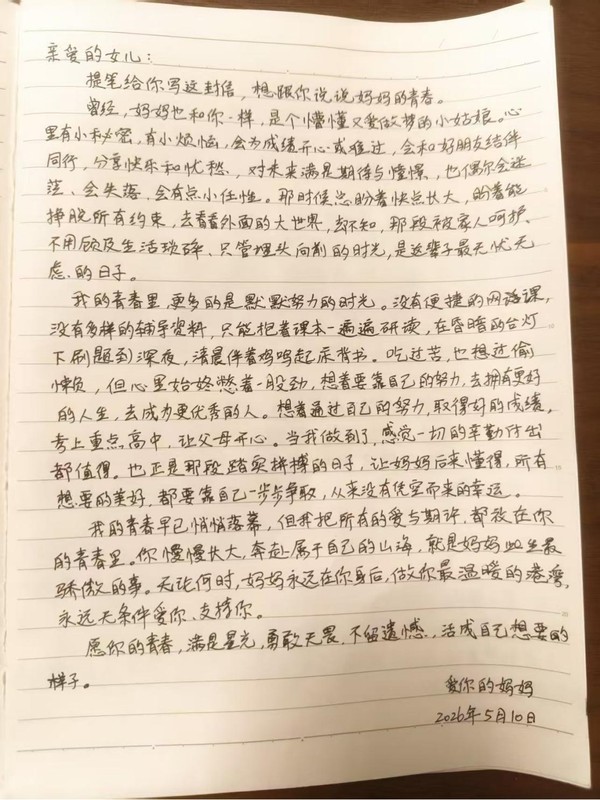 亲爱的女儿：
提笔给你写这封信，想跟你说说妈妈的青春。
曾经，妈妈也和你一样，是个懵懂又爱做梦的小姑娘。心
里有小秘密，有小烦恼，会为成绩开心或难过，会和好朋友结伴
同行，分享快乐和忧愁，对未来满是期待与憧憬，也偶尔会迷
茫、会失落、会有点小任性。那时候总盼着快点长大，盼着能
挣脱所有约束，去看看外面的大世界，却不知，那段被家人呵护、
不用顾及生活琐碎、只管埋头向前的时光，是这辈子最无忧无
虑的日子。
我的青春里，更多的是默默努力的时光。没有便捷的网络课，
没有多样的辅导资料，只能把着课本一遍遍研读，在昏暗的台灯
下刷题到深夜，清晨伴着鸡鸣起床背书。吃过苦，也想过偷
懒，但心里始终憋着一股劲，想着要靠自己的努力，去拥有更好
的人生，去成为更优秀的人。想着通过自己的努力，取得好的成绩，
考上重点高中，让父母开心。当我做到了，感觉一切的辛勤付出
都值得。也正是那段踏实拼搏的日子，让妈妈后来懂得，所有
想要的美好，都要靠自己一步步争取，从来没有凭空而来的幸运。
我的青春早已悄悄落幕，但我把所有的爱与期许，都放在你
的青春里。你慢慢长大，奔赴属于自己的山海，就是妈妈此生最
骄傲的事。无论何时，妈妈永远在你身后，做你最温暖的港湾，
永远无条件爱你、支持你。
愿你的青春，满是星光，勇敢无畏，不留遗憾，活成自己想要的
样子。
爱你的妈妈
2026年5月10日